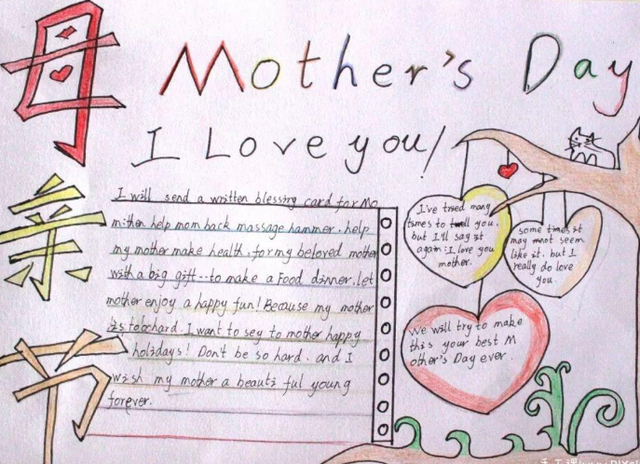 母
亲
节
Mother's Day
I Love you!
I will send a written blessing card for Mo
m: then help mom back massage hammer. help
my mother make health. for my beloved mother
with a big gift...to make a Food dinner. let
mother enjoy a happy fun! Because my mother
is to hard. I want to sey to mother happy
holidays! Don't be so hard. and I
wish my mother a beauti ful young
forever.
I've tried many
times to tell you.
but I'll say it
again: I love you
mother.
some times it
may not seem
like it. but I
really do love
you.
We will try to make
this your best M
other's Day ever.